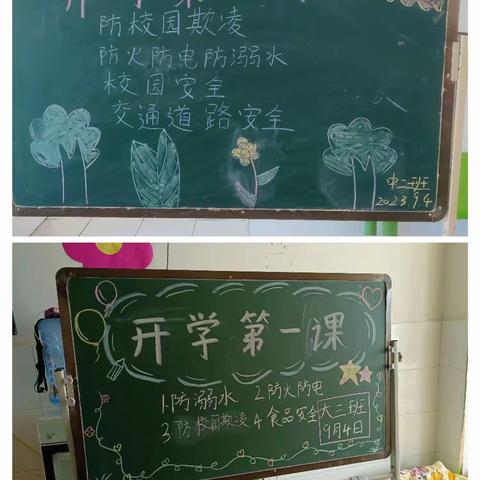 开学第
防校园欺凌
防火防电防溺水
校园安全
交通道路安全
中二班
2023.9.4
开学第一课
1.防溺水 2.防火防电
3.防校园欺凌 4.食品安全
大三班
9月4日